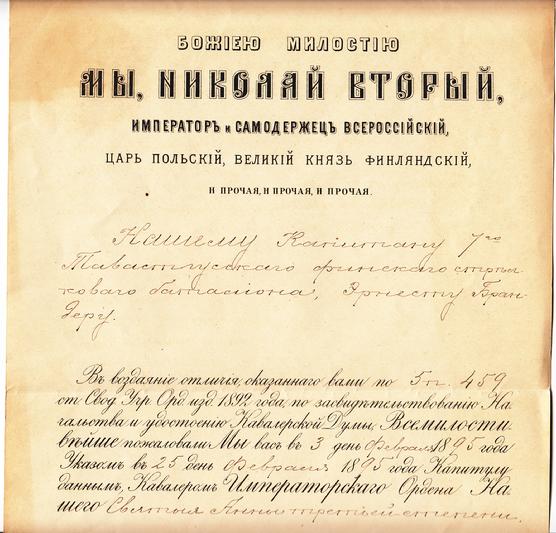 БОЖІЕЮ МИЛОСТІЮ
МЫ, НИКОЛАЙ ВТОРЫЙ,
ИМПЕРАТОРЪ и САМОДЕРЖЕЦЪ ВСЕРОССІЙСКІЙ,
ЦАРЬ ПОЛЬСКІЙ, ВЕЛИКІЙ КНЯЗЬ ФИНЛЯНДСКІЙ,
И ПРОЧАЯ, И ПРОЧАЯ, И ПРОЧАЯ.
Нашему Капитану 7го
Тавастгусскаго финскаго стрѣл-
коваго баталіона, Эрнесту Бран-
деру.
Въ воздаяніе отличія, оказаннаго вами по 5 п. 459
ст. Свод. Учр. Орд. изд. 1892 года, по засвидѣтельствованію На-
чальства и удостоенію Кавалерской Думы, Всемилости-
вѣйше пожаловали Мы васъ въ 3 день Февраля 1895 года
Указомъ въ 25 день Февраля 1895 года Капитулу
даннымъ, Кавалеромъ Императорскаго Ордена На-
шего Святыя Анны третьей степени.